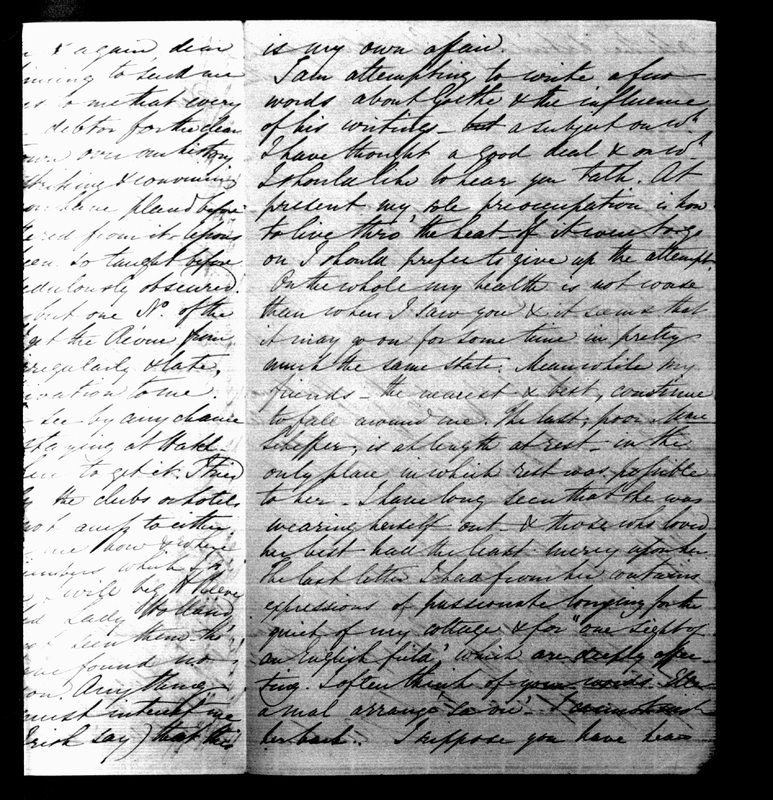 & again dear
to send me
to me that every
debtor for the clear
own over our history
striking & convincing
placed before
from its
so taught before
sedulously obscured.
but one No. of the
get the Revue from
irregularly & late,
to me.
see by any chance
staying at
to get it. I tried
the clubs or hotels
to either
me how & where
numbers which
will beg H Reeve
Lady Holland
seen them the
found no
Any thing
must interest me
Irish say) that this
is my own affair.
I am attempting to write a few
words about Goethe & the influence
of his writings - but a subject on wh
I have thought a good deal & on wh
I should like to hear you talk. At
present my sole preoccupation is how
to live thro' the heat. If it were to go
on I should prefer to give up the attempt.
On the whole my health is not worse
than when I saw you & it seems that
it may go on for some time in pretty
much the same state. Meanwhile my
friends - the nearest & best, continue
to fall around me. The last, poor Mme
Scheffer, is at length at rest - in the
only place in which rest was possible
to her. I have long seen that she was
wearing herself out - & those who loved
her best had the least mercy upon her.
The last letter I had from her contains
expressions of passionate longing for the
quiet of my cottage & for "one sight of
an English field" which are deeply affec-
ting. I often think of your words. Elle
a mal arrangé sa vie. I
her back. I suppose you have hea